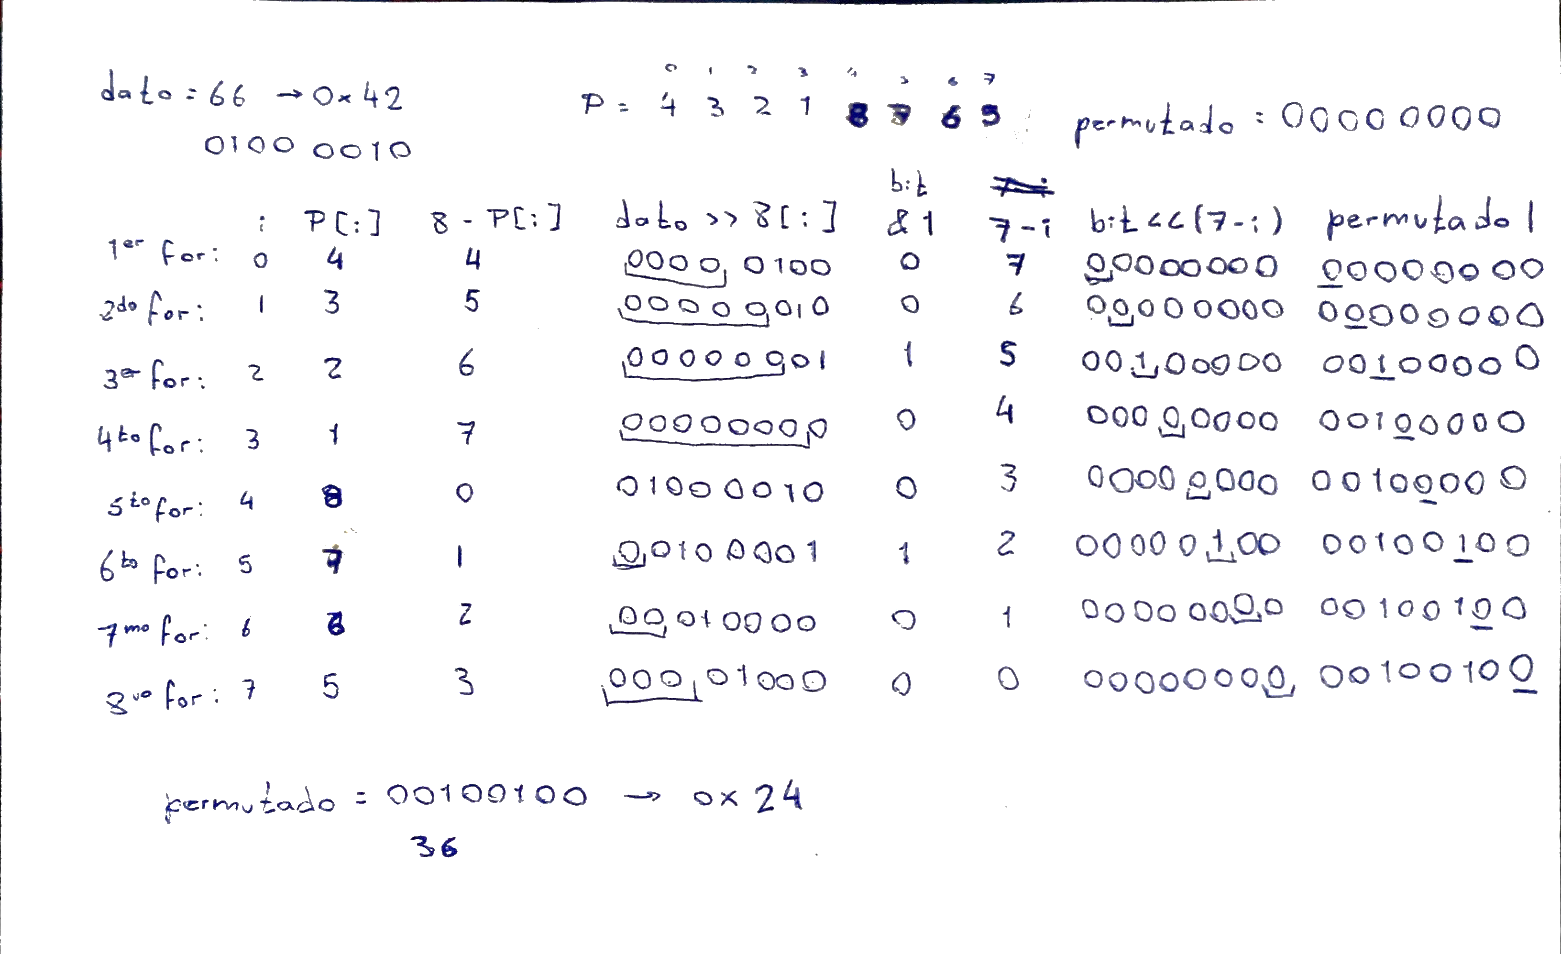 0 1 2 3 4 5 6 7
dato = 66 → 0x42 P = 4 3 2 1 8 7 6 5 permutado = 0000 0000
0100 0010
bit
i P[i] 8 - P[i] dato >> 8[i] &1 7-i bit<<(7-i) permutado |
1er for: 0 4 4 0000 0100 0 7 00000000 00000000
2do for: 1 3 5 00000010 0 6 00000000 00000000
3er for: 2 2 6 00000001 1 5 00100000 00100000
4to for: 3 1 7 00000000 0 4 00000000 00100000
5to for: 4 8 0 01000010 0 3 00000000 00100000
6to for: 5 7 1 00100001 1 2 00000100 00100100
7mo for: 6 6 2 00010000 0 1 00000000 00100100
8vo for: 7 5 3 00001000 0 0 00000000 00100100
permutado = 00100100 → 0x24
36